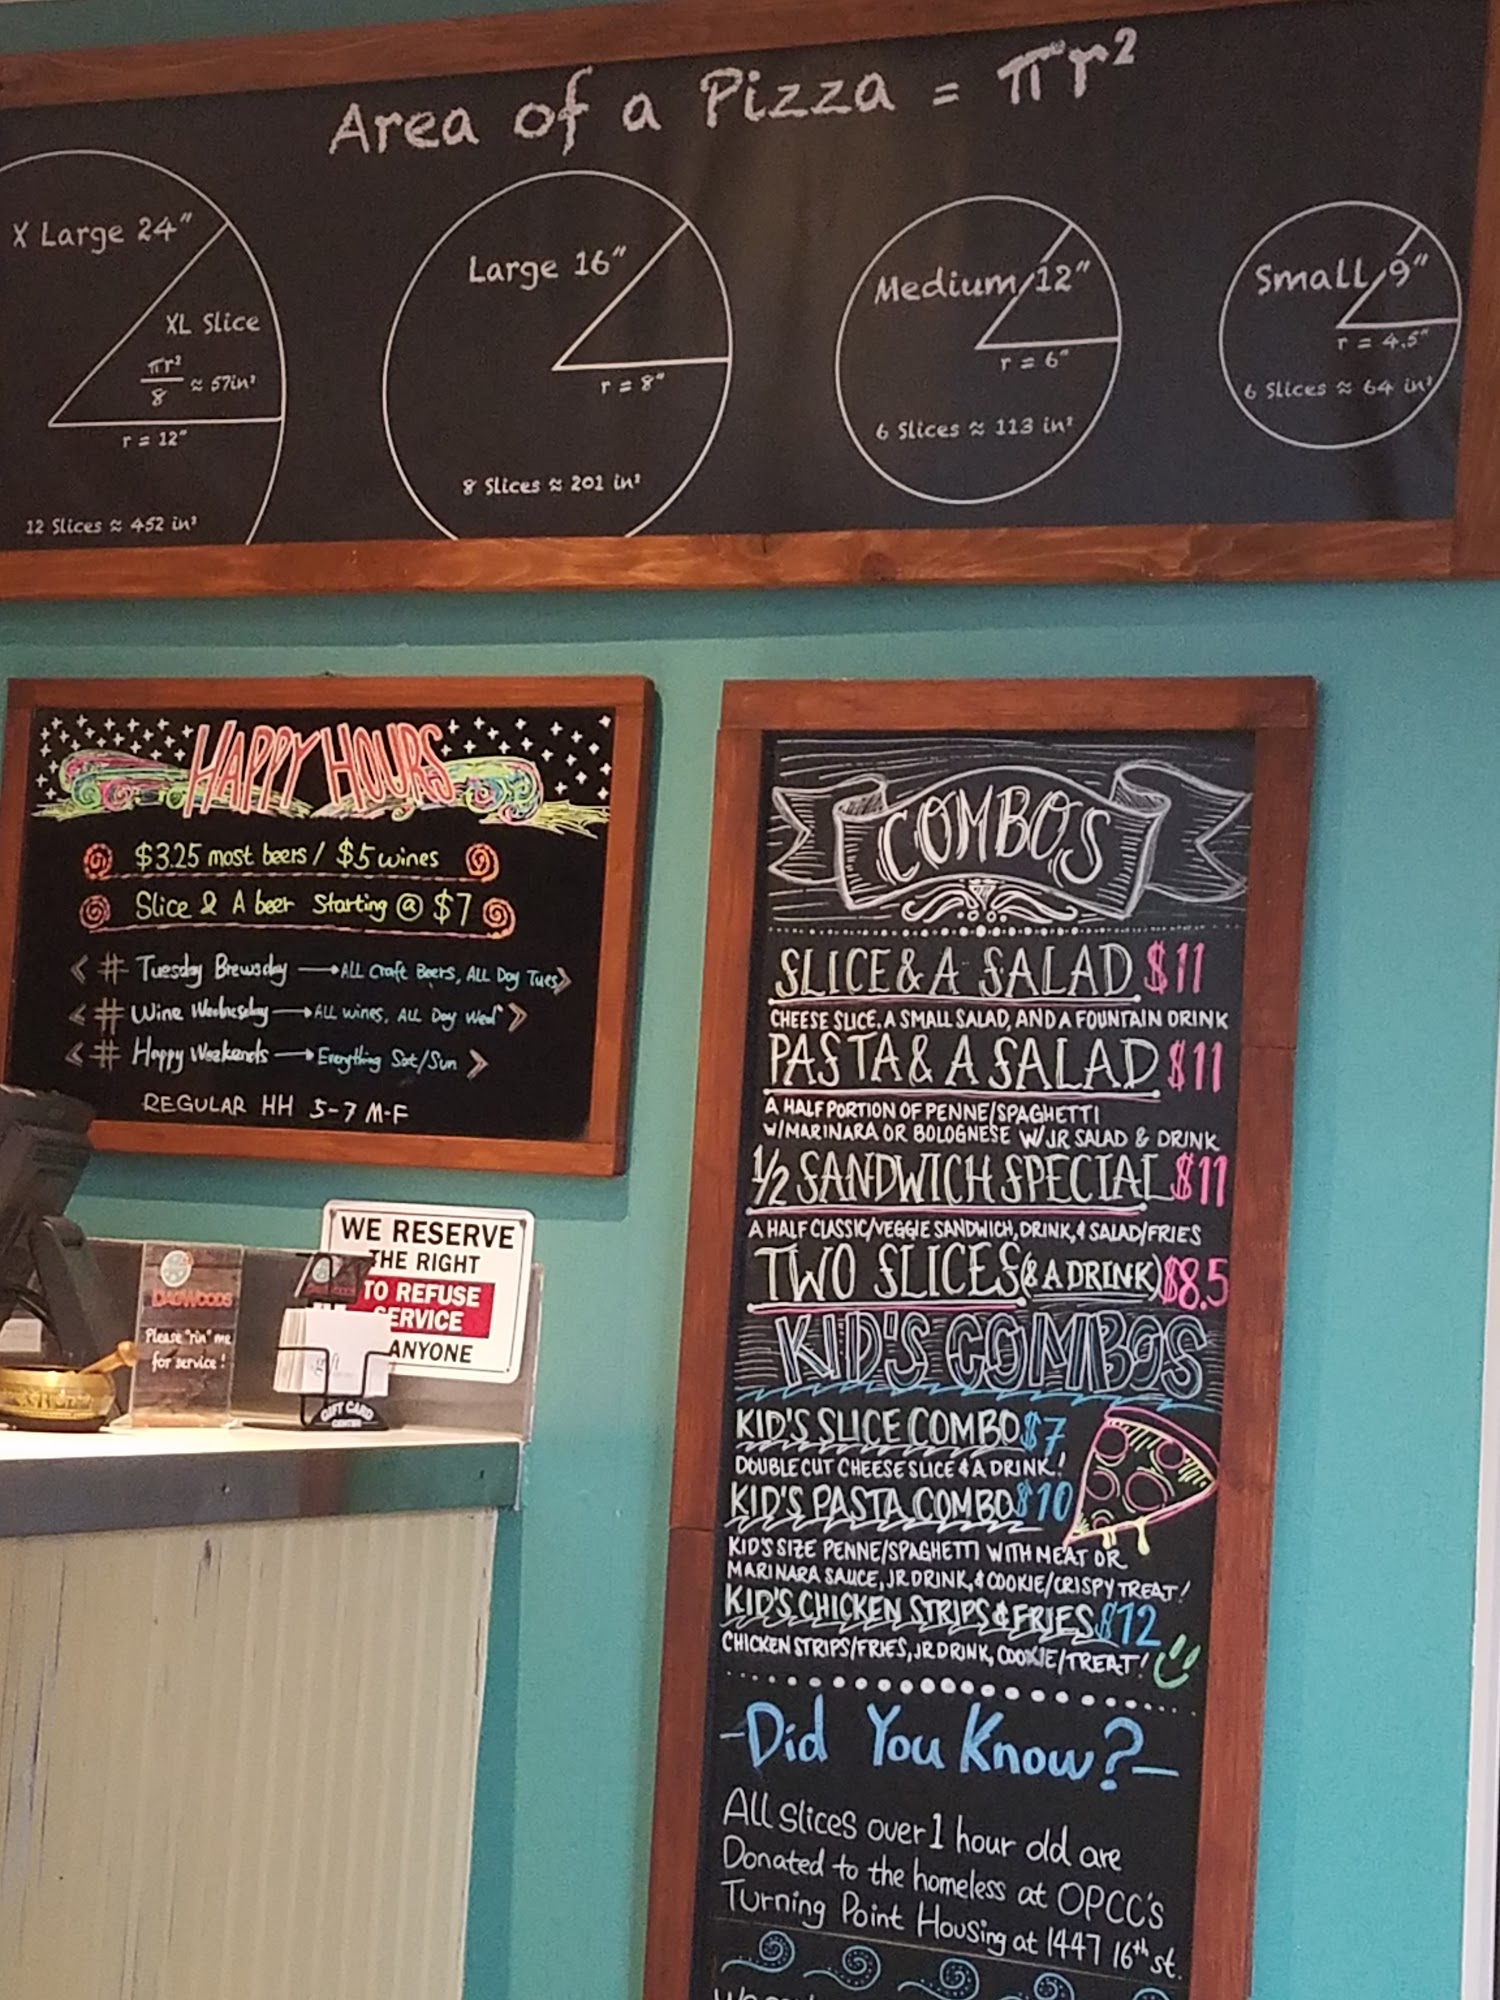 Area of a Pizza = πr²
X Large 24"
XL Slice
πr²
8
≈ 57in²
r = 12"
12 Slices ≈ 452 in²
Large 16"
r = 8"
8 Slices ≈ 201 in²
Medium 12"
r = 6"
6 Slices ≈ 113 in²
Small 9"
r = 4.5"
6 Slices ≈ 64 in²
HAPPY HOURS
$3.25 most beers / $5 wines
Slice & A beer Starting @ $7
# Tuesday Brewsday → ALL Craft Beers, ALL Day Tues
# Wine Wednesday → ALL wines, ALL Day Wed
# Happy Weekends → Everything Sat/Sun
REGULAR HH 5-7 M-F
WE RESERVE
THE RIGHT
TO REFUSE
SERVICE
ANYONE
DAGWOODS
Please "rin" me
for service!
gift
GIFT CARD
CENTER
COMBOS
SLICE & A SALAD $11
CHEESE SLICE, A SMALL SALAD, AND A FOUNTAIN DRINK
PASTA & A SALAD $11
A HALF PORTION OF PENNE/SPAGHETTI
W/MARINARA OR BOLOGNESE W/ JR SALAD & DRINK
1/2 SANDWICH SPECIAL $11
A HALF CLASSIC/VEGGIE SANDWICH, DRINK, & SALAD/FRIES
TWO SLICES (& A DRINK) $8.5
KID'S COMBOS
KID'S SLICE COMBO $7
DOUBLE CUT CHEESE SLICE & A DRINK!
KID'S PASTA COMBO $10
KID'S SIZE PENNE/SPAGHETTI WITH MEAT OR
MARINARA SAUCE, JR DRINK, & COOKIE/CRISPY TREAT!
KID'S CHICKEN STRIPS & FRIES $12
CHICKEN STRIPS/FRIES, JR DRINK, COOKIE/TREAT!
-Did You Know?-
All slices over 1 hour old are
Donated to the homeless at OPCC's
Turning Point Housing at 1447 16th st.